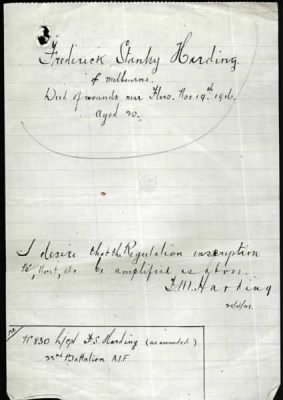 Frederick Stanley Harding
of Melbourne.
Died of wounds near Nov 19th 1916.
Aged 20.
I desire that the Regulation inscription
be amplified as above.
F.M. Harding
No 830 L/Cpl F.S. Harding (as amended)
22nd Battalion A.I.F